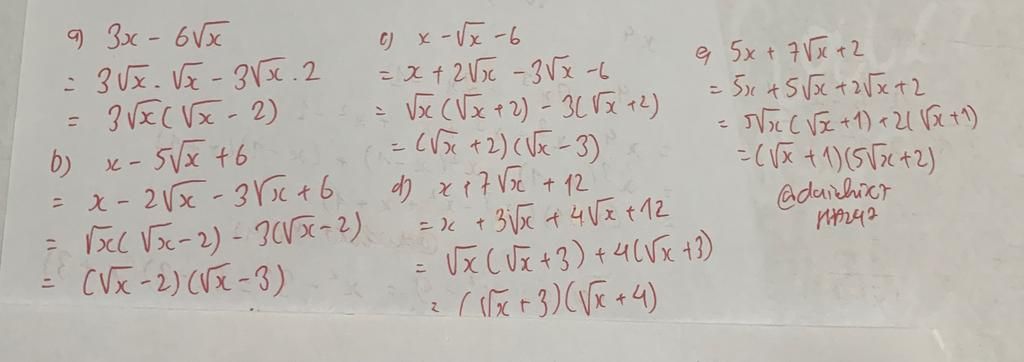 a) 3x - 6√x
= 3√x . √x - 3√x . 2
= 3√x(√x - 2)
b) x - 5√x + 6
= x - 2√x - 3√x + 6
= √x(√x - 2) - 3(√x - 2)
= (√x - 2)(√x - 3)
c) x - √x - 6
= x + 2√x - 3√x - 6
= √x(√x + 2) - 3(√x + 2)
= (√x + 2)(√x - 3)
d) x + 7√x + 12
= x + 3√x + 4√x + 12
= √x(√x + 3) + 4(√x + 3)
= (√x + 3)(√x + 4)
e) 5x + 7√x + 2
= 5x + 5√x + 2√x + 2
= 5√x(√x + 1) + 2(√x + 1)
= (√x + 1)(5√x + 2)